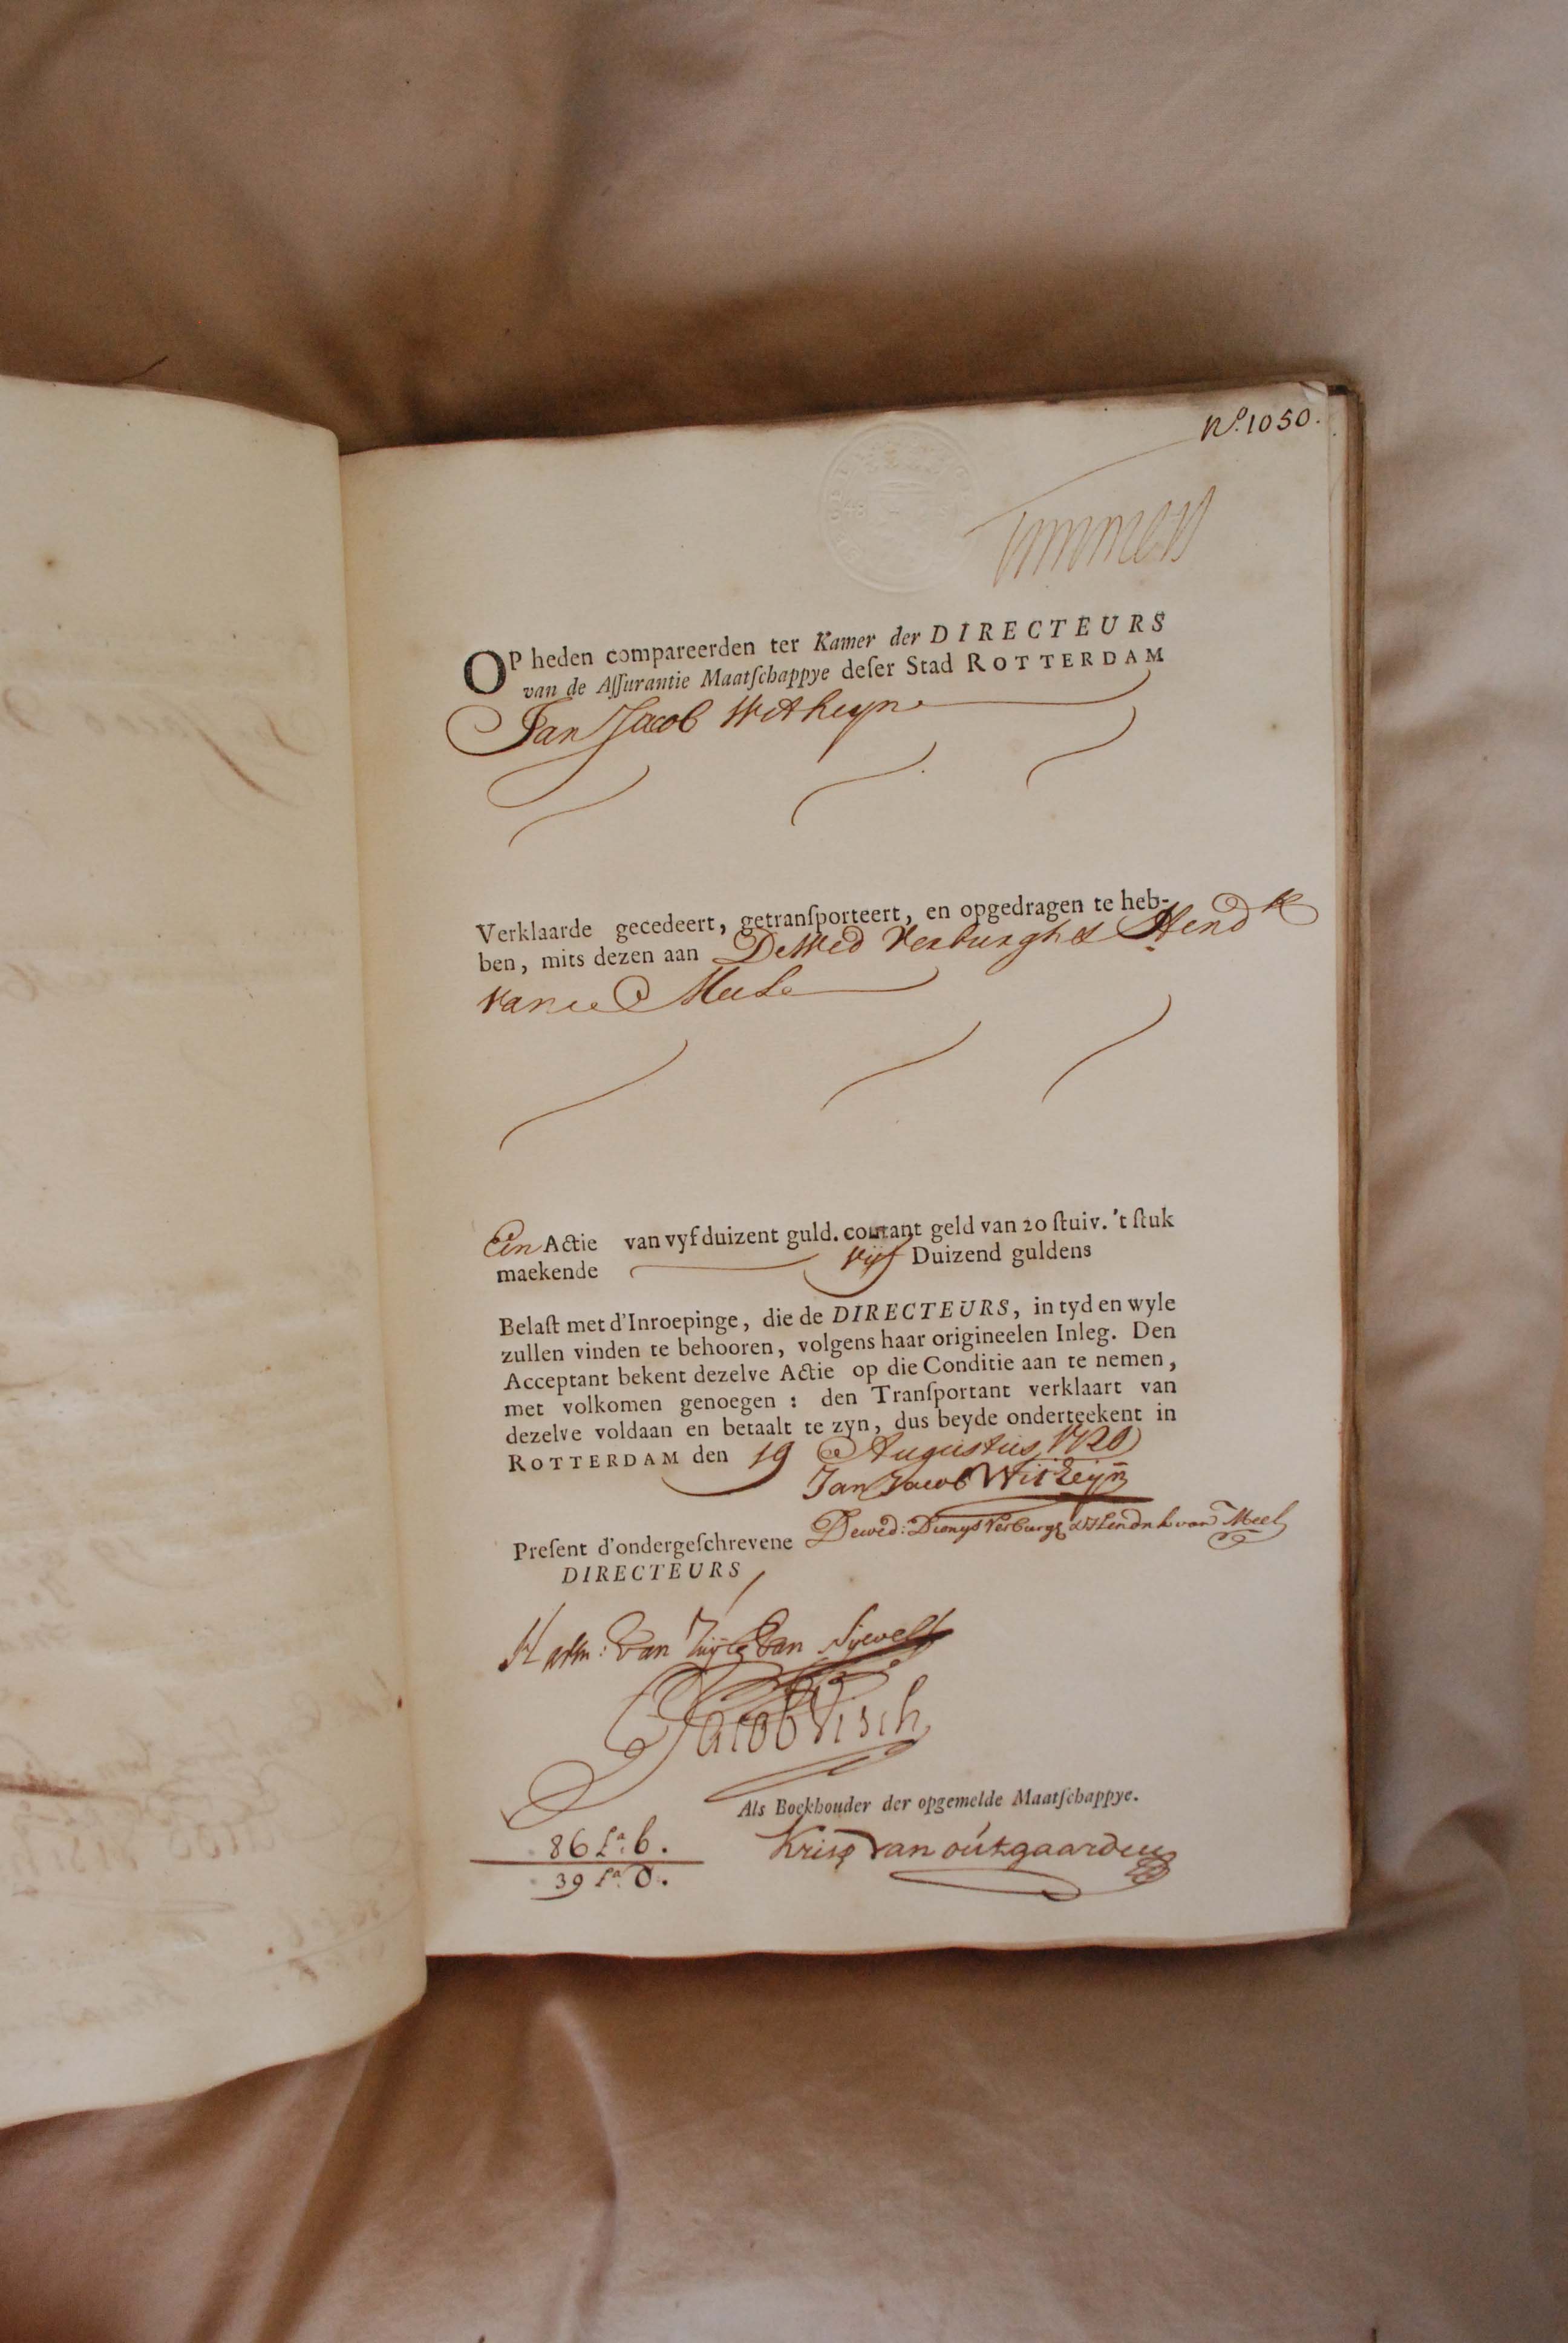 No. 1050.
OP heden compareerden ter Kamer der DIRECTEURS
van de Aſſurantie Maatſchappye deſer Stad ROTTERDAM
Jan Jacob Witheyn
Verklaarde gecedeert, getranſporteert, en opgedragen te heb-
ben, mits dezen aan De Wed Verburgh & Hendk
van Meel
Een Actie van vyf duizent guld. courant geld van 20 ſtuiv. 't ſtuk
maekende vyf Duizend guldens
Belaſt met d'Inroepinge, die de DIRECTEURS, in tyd en wyle
zullen vinden te behooren, volgens haar origineelen Inleg. Den
Acceptant bekent dezelve Actie op die Conditie aan te nemen,
met volkomen genoegen : den Tranſportant verklaart van
dezelve voldaan en betaalt te zyn, dus beyde onderteekent in
ROTTERDAM den 19 Augustus 1720
Jan Jacob Witheijn
Preſent d'ondergeſchrevene De wed: Dionys Verburgh & Hendrik van Meel
DIRECTEURS
Harm: Van Zuijle Van Nijevelt
Jacob Visch
Als Boekhouder der opgemelde Maatſchappye.
86 La: b. Krisp van outgaarden
39 La: O.